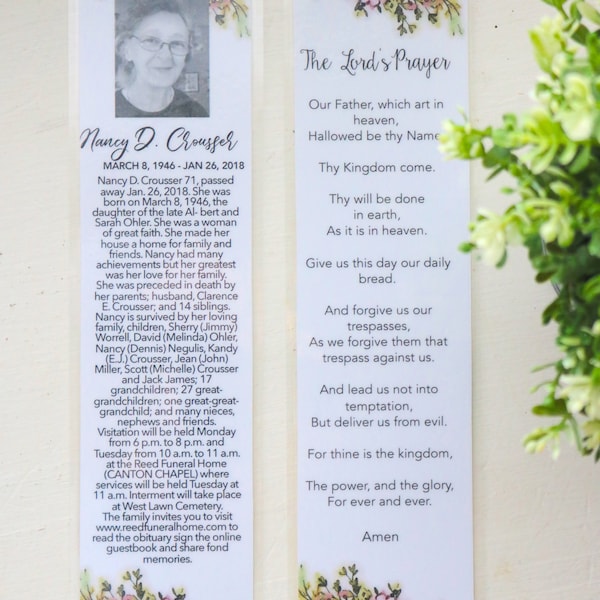 Nancy D. Crousser
MARCH 8, 1946 - JAN 26, 2018
Nancy D. Crousser 71, passed
away Jan. 26, 2018. She was
born on March 8, 1946, the
daughter of the late Al- bert and
Sarah Ohler. She was a woman
of great faith. She made her
house a home for family and
friends. Nancy had many
achievements but her greatest
was her love for her family.
She was preceded in death by
her parents; husband, Clarence
E. Crousser; and 14 siblings.
Nancy is survived by her loving
family, children, Sherry (Jimmy)
Worrell, David (Melinda) Ohler,
Nancy (Dennis) Negulis, Kandy
(E.J.) Crousser, Jean (John)
Miller, Scott (Michelle) Crousser
and Jack James; 17
grandchildren; 27 great-
grandchildren; one great-great-
grandchild; and many nieces,
nephews and friends.
Visitation will be held Monday
from 6 p.m. to 8 p.m. and
Tuesday from 10 a.m. to 11 a.m.
at the Reed Funeral Home
(CANTON CHAPEL) where
services will be held Tuesday at
11 a.m. Interment will take place
at West Lawn Cemetery.
The family invites you to visit
www.reedfuneralhome.com to
read the obituary sign the online
guestbook and share fond
memories.
The Lord's Prayer
Our Father, which art in
heaven,
Hallowed be thy Name.
Thy Kingdom come.
Thy will be done
in earth,
As it is in heaven.
Give us this day our daily
bread.
And forgive us our
trespasses,
As we forgive them that
trespass against us.
And lead us not into
temptation,
But deliver us from evil.
For thine is the kingdom,
The power, and the glory,
For ever and ever.
Amen